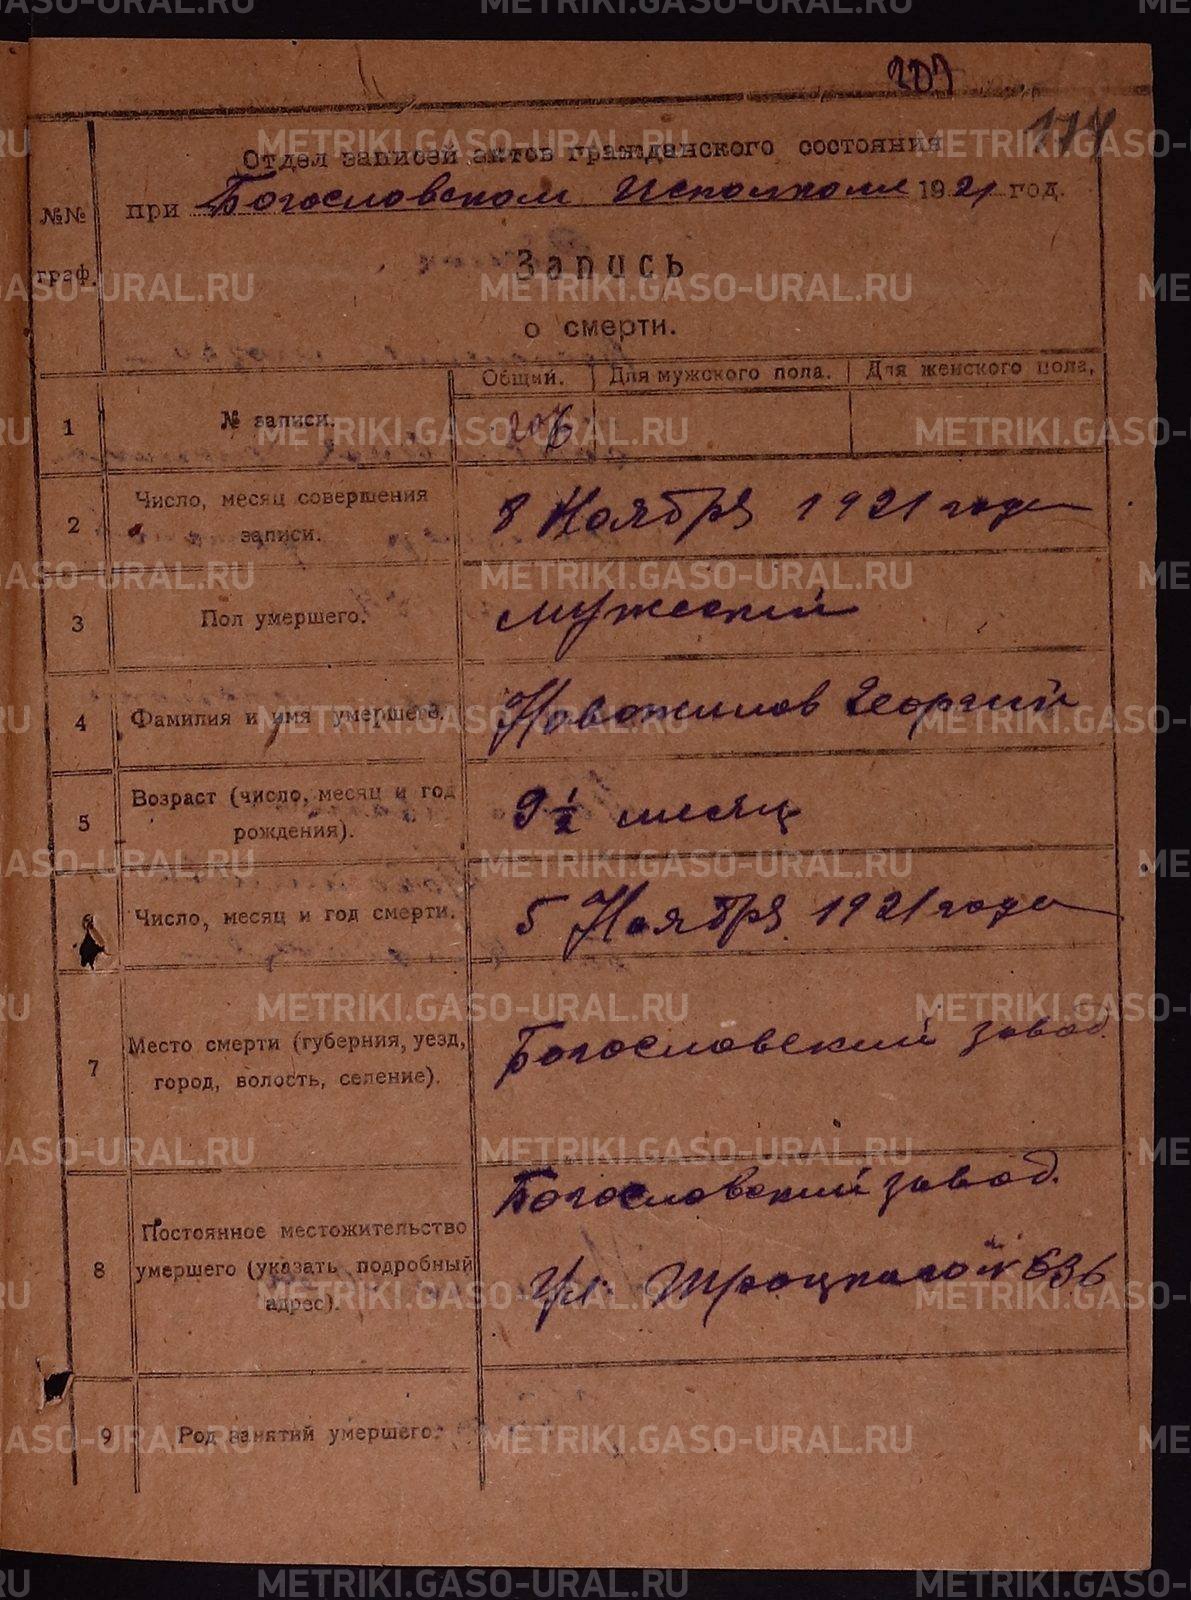 207
174
Отдел записей актов гражданского состояния
при Богословском Исполкоме 1921 год.
№№ граф.
Запись
о смерти.
Общий. Для мужского пола. Для женского пола,
1 № записи. 206
2 Число, месяц совершения
записи. 8 Ноября 1921 года
3 Пол умершего. мужеский
4 Фамилия и имя умершего. Новожилов Георгий
5 Возраст (число, месяц и год
рождения). 9 1/2 месяц
6 Число, месяц и год смерти. 5 Ноября 1921 года
7 Место смерти (губерния, уезд,
город, волость, селение). Богословский завод.
Богословский завод.
8 Постоянное местожительство
умершего (указать подробный
адрес). Ул. Троцкаго д. № 636
9 Род занятий умершего.
METRIKI.GASO-URAL.RU